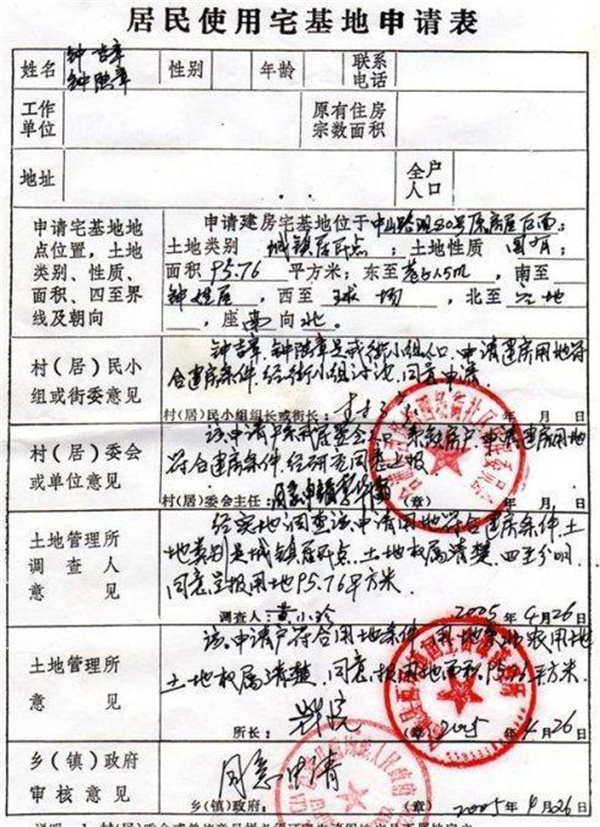 居民使用宅基地申请表
姓名 钟吉章 性别 年龄 联系
钟陆章 电话
工作 原有住房
单位 宗数面积
地址 全户
人口
申请宅基地地 申请建房宅基地位于中山路现80号原房屋后面;
点位置，土地 土地类别 城镇居民点 ; 土地性质 国有 ;
类别、性质、 面积 95.76 平方米; 东至 巷 , 南至
面积、四至界 钟姓屋 , 西至 球场 , 北至 空地
线及朝向 , 座南向北。
村(居)民小 钟吉章、钟陆章是我街小组人口,申请建房用地符
组或街委意见 合建房条件,经街小组讨论,同意申请。
村(居)民小组组长或街长: 年 月 日
村(居)委会 该申请户系我居委会人口,系缺房户,申请建房用地
或单位意见 符合建房条件,经研究同意上报
村(居)委会主任: (章) 年 月 日
土地管理所 经实地调查该申请用地符合建房条件,土
调查人 地类别是城镇居民点,土地权属清楚,四至分明,
意见 同意呈报用地95.76平方米
调查人: 黄小玲 2005 年 4 月 26 日
土地管理所 该申请户符合用地条件,用地 农用地
意见 土地权属清楚,同意 报用地面积95.76平方米.
所长: (章) 2005 年 4 月 26 日
乡(镇)政府 同意申请
审核意见 乡(镇)政府: (章) 2005 年 4 月 26 日